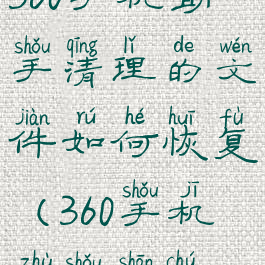 shǒu qīng lǐ de wén
手清理的文
jiàn rú hé huī fù
件如何恢复
shǒu jī
(360手机
zhù shǒu shān chú